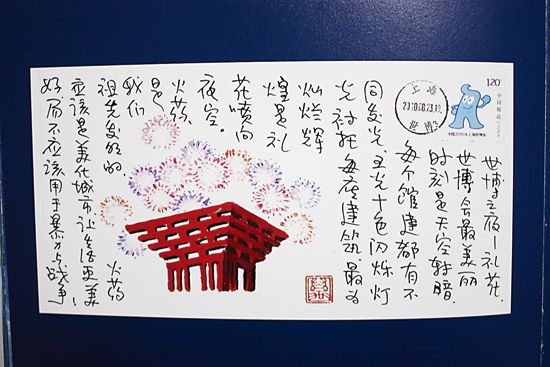 世博之夜—礼花
世博会最美丽
时刻是天空转暗
每个馆建都有不
同发光,五光十色闪烁灯
光衬托每座建筑。最为
灿烂辉
煌是礼
花喷向
夜空。
火药
是
我们
祖先发明的。 火药
应该是美化城市,让生活更美
好,而不应该用于暴力与战争!
120
中国邮政
上海
2010.08.23
世博